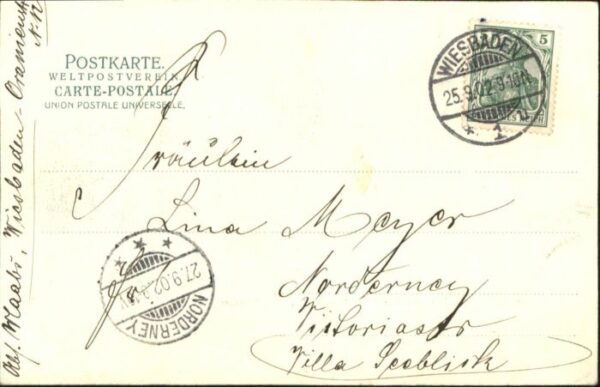 POSTKARTE.
WELTPOSTVEREIN
CARTE-POSTALE.
UNION POSTALE UNIVERSELLE.
5
WIESBADEN
25.9.02.9-10
* 1
Fräulein
Lina Meyer
Norderney
Viktoriastr
Villa Seeblick
27.9.02
NORDERNEY
Wiesbaden